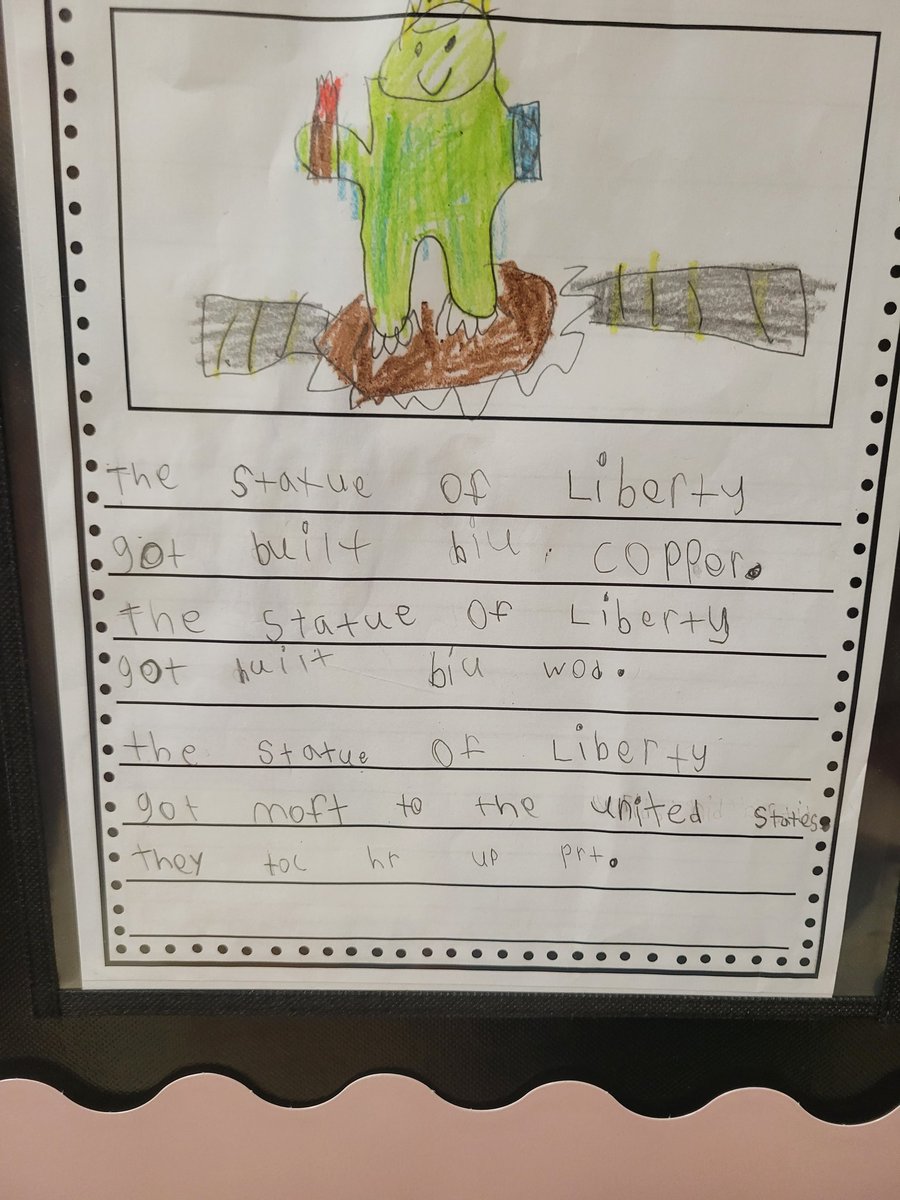 The Statue of Liberty
got built biu copper.
The Statue of Liberty
got built biu wod.
the Statue of Liberty
got moft to the united states.
they toc hr up prt.